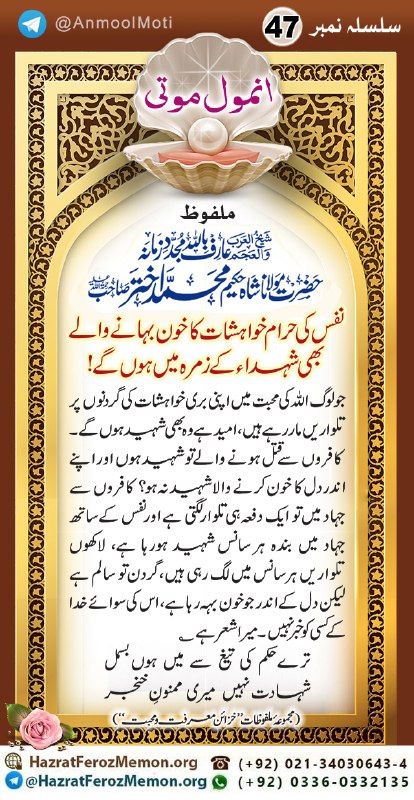 @AnmoolMoti
سلسلہ نمبر 47
انمول موتی
ملفوظ
شیخ العرب والعجم عارف باللہ مجدد زمانہ
حضرت مولانا شاہ حکیم محمد اختر صاحب
نفس کی حرام خواہشات کا خون بہانے والے
بھی شہداء کے زمرہ میں ہوں گے!
جو لوگ اللہ کی محبت میں اپنی بری خواہشات کی گردنوں پر
تلواریں مار رہے ہیں، امید ہے وہ بھی شہید ہوں گے۔
کافروں سے قتل ہونے والے تو شہید ہوں اور اپنے
اندر دل کا خون کرنے والا شہید نہ ہو؟ کافروں سے
جہاد میں تو ایک دفعہ ہی تلوار لگتی ہے اور نفس کے ساتھ
جہاد میں بندہ ہر سانس شہید ہو رہا ہے، لاکھوں
تلواریں ہر سانس میں لگ رہی ہیں، گردن تو سالم ہے
لیکن دل کے اندر جو خون بہہ رہا ہے، اس کی سوائے خدا
کے کسی کو خبر نہیں۔ میرا شعر ہے
ترے حکم کی تیغ سے میں ہوں بسمل
شہادت نہیں میری ممنونِ خنجر
(مجموعۂ ملفوظات "خزائن معرفت و محبت")
HazratFerozMemon.org (+92) 021-34030643-4
@HazratFerozMemon.org (+92) 0336-0332135